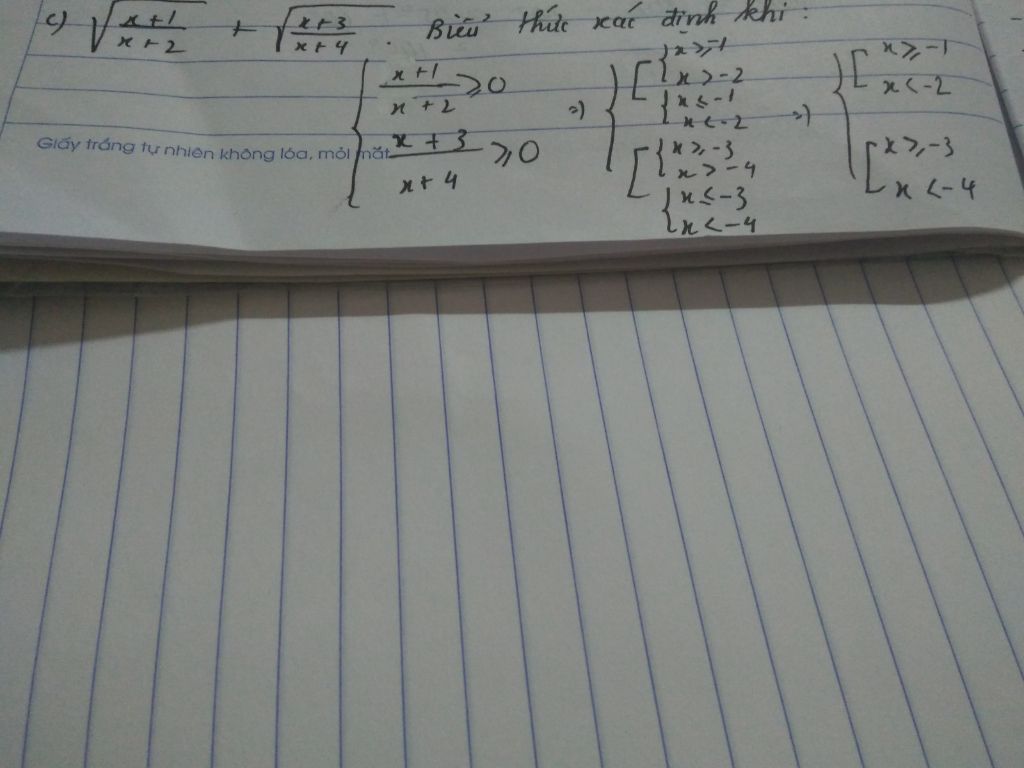 c) √((x+1)/(x+2)) + √((x+3)/(x+4)). Biểu thức xác định khi:
{ (x+1)/(x+2) ≥ 0 ⇒) { [ { x ≥ -1 x > -2 { x ≤ -1 x < -2 ⇒) { [ x ≥ -1 x < -2
(x+3)/(x+4) ≥ 0 [ { x ≥ -3 x > -4 { x ≤ -3 x < -4 [ x ≥ -3 x < -4
Giấy trắng tự nhiên không lóa, mỏi mắt